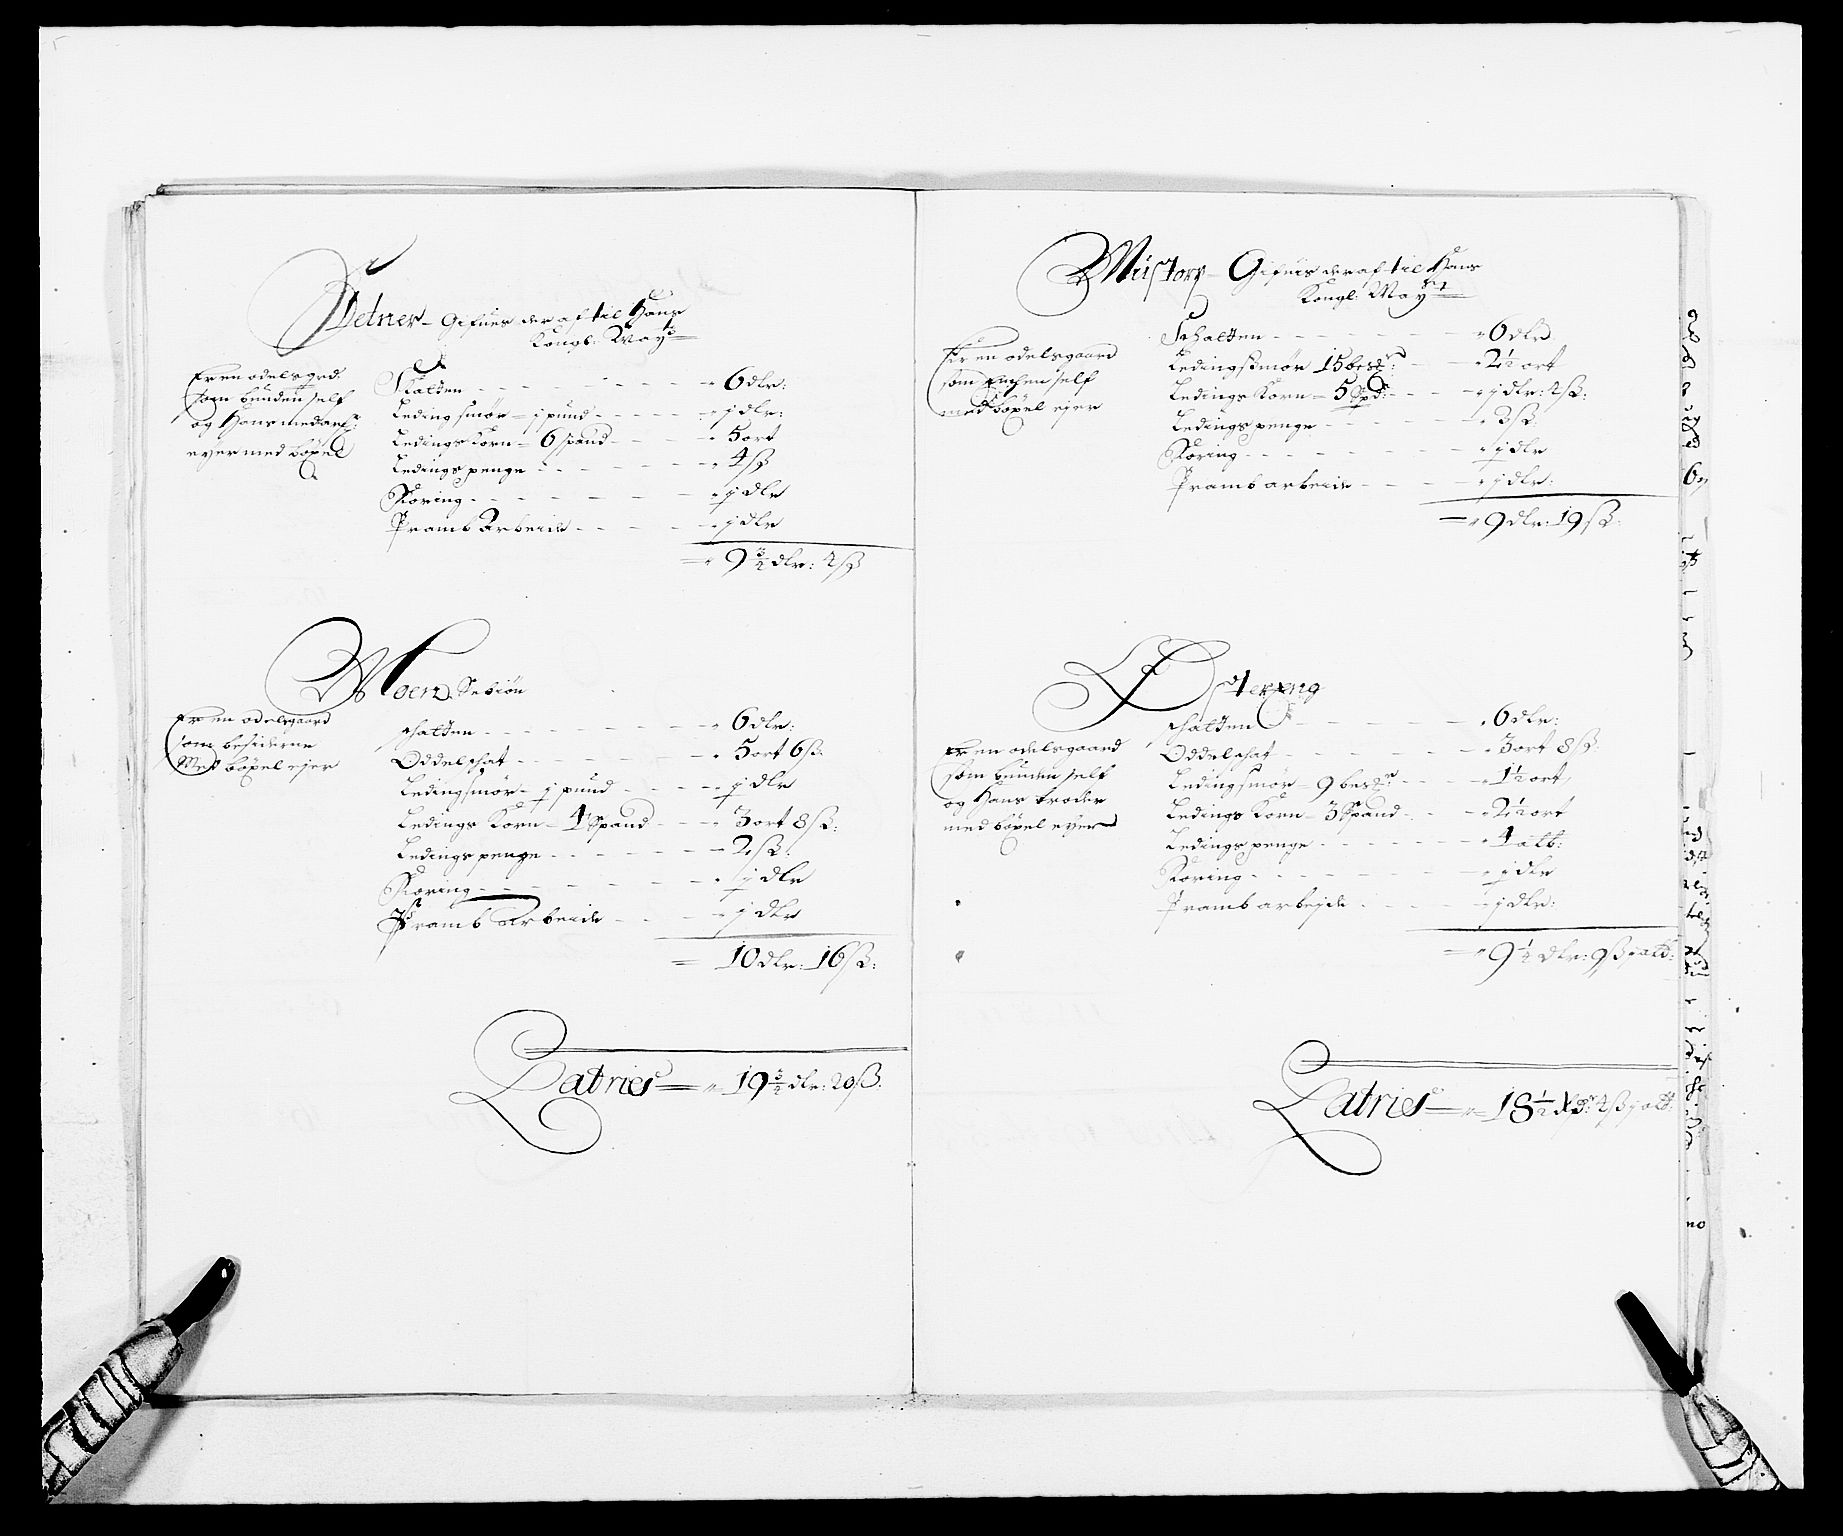 Tvetner – Gifues der af til Hans
Kongl: Mayts
Er en odelsgrd:
som bunden self
og Hans medarf:
eyer med böxel
Skatten – – – " 6 dlr:
Ledingsmör – j pund – – " j dlr:
Ledings Korn – 6 spand – – " 5 ort
Ledings penge – – – " 4 ß
Skoring – – – " j dlr
Pramb Arbeide – – – " j dlr
– " 9 3/4 dlr: 4 ß
Moen Sebiön
Er en odelsgaard
som besiderne
Med böxel ejer
schatten – – – " 6 dlr:
Oddelschat – – – " 5 ort 6 ß:
Ledingsmör – j pund – – " j dlr
Ledings Korn – 4 Spand – – " 3 ort 8 ß:
Ledings penge – – – 2 ß:
Skoring – – – " j dlr
Pramb arbeide – – – " j dlr
= 10 dlr: 16 ß:
Latries = " 19 3/4 dlr: 20 ß:
Mustorp – Gifues der af til Hans
Kongl: Mayt
Er en odelsgaard
som Enchen self
med böxel ejer
Schatten – – – " 6 dlr
Ledings smör 15 besmr – – " 2 1/2 ort
Ledings Korn – 5 Spd: – – " j dlr: 4 ß:
Ledings penge – – – " 3 ß:
Skoring – – – " j dlr
Pramb arbeide – – – " j dlr:
= " 9 dlr: 19 ß:
Østereng
Er en odelsgaard
som bunden self
og Hans broder
med böxel eyer
schatten – – – " 6 dlr:
Oddelschat – – – " 3 ort 8 ß:
Ledingsmör – 9 besmr – – " 1 1/2 ort
Ledings Korn – 3 Spand – – " 2 1/2 ort
Ledings penge – – – " 4 alb:
Skoring – – – " j dlr
Pramb arbejde – – – " j dlr:
= " 9 1/4 dlr: 9 ß j alb:
Latries = " 18 1/2 dlr: 4 ß j alb: